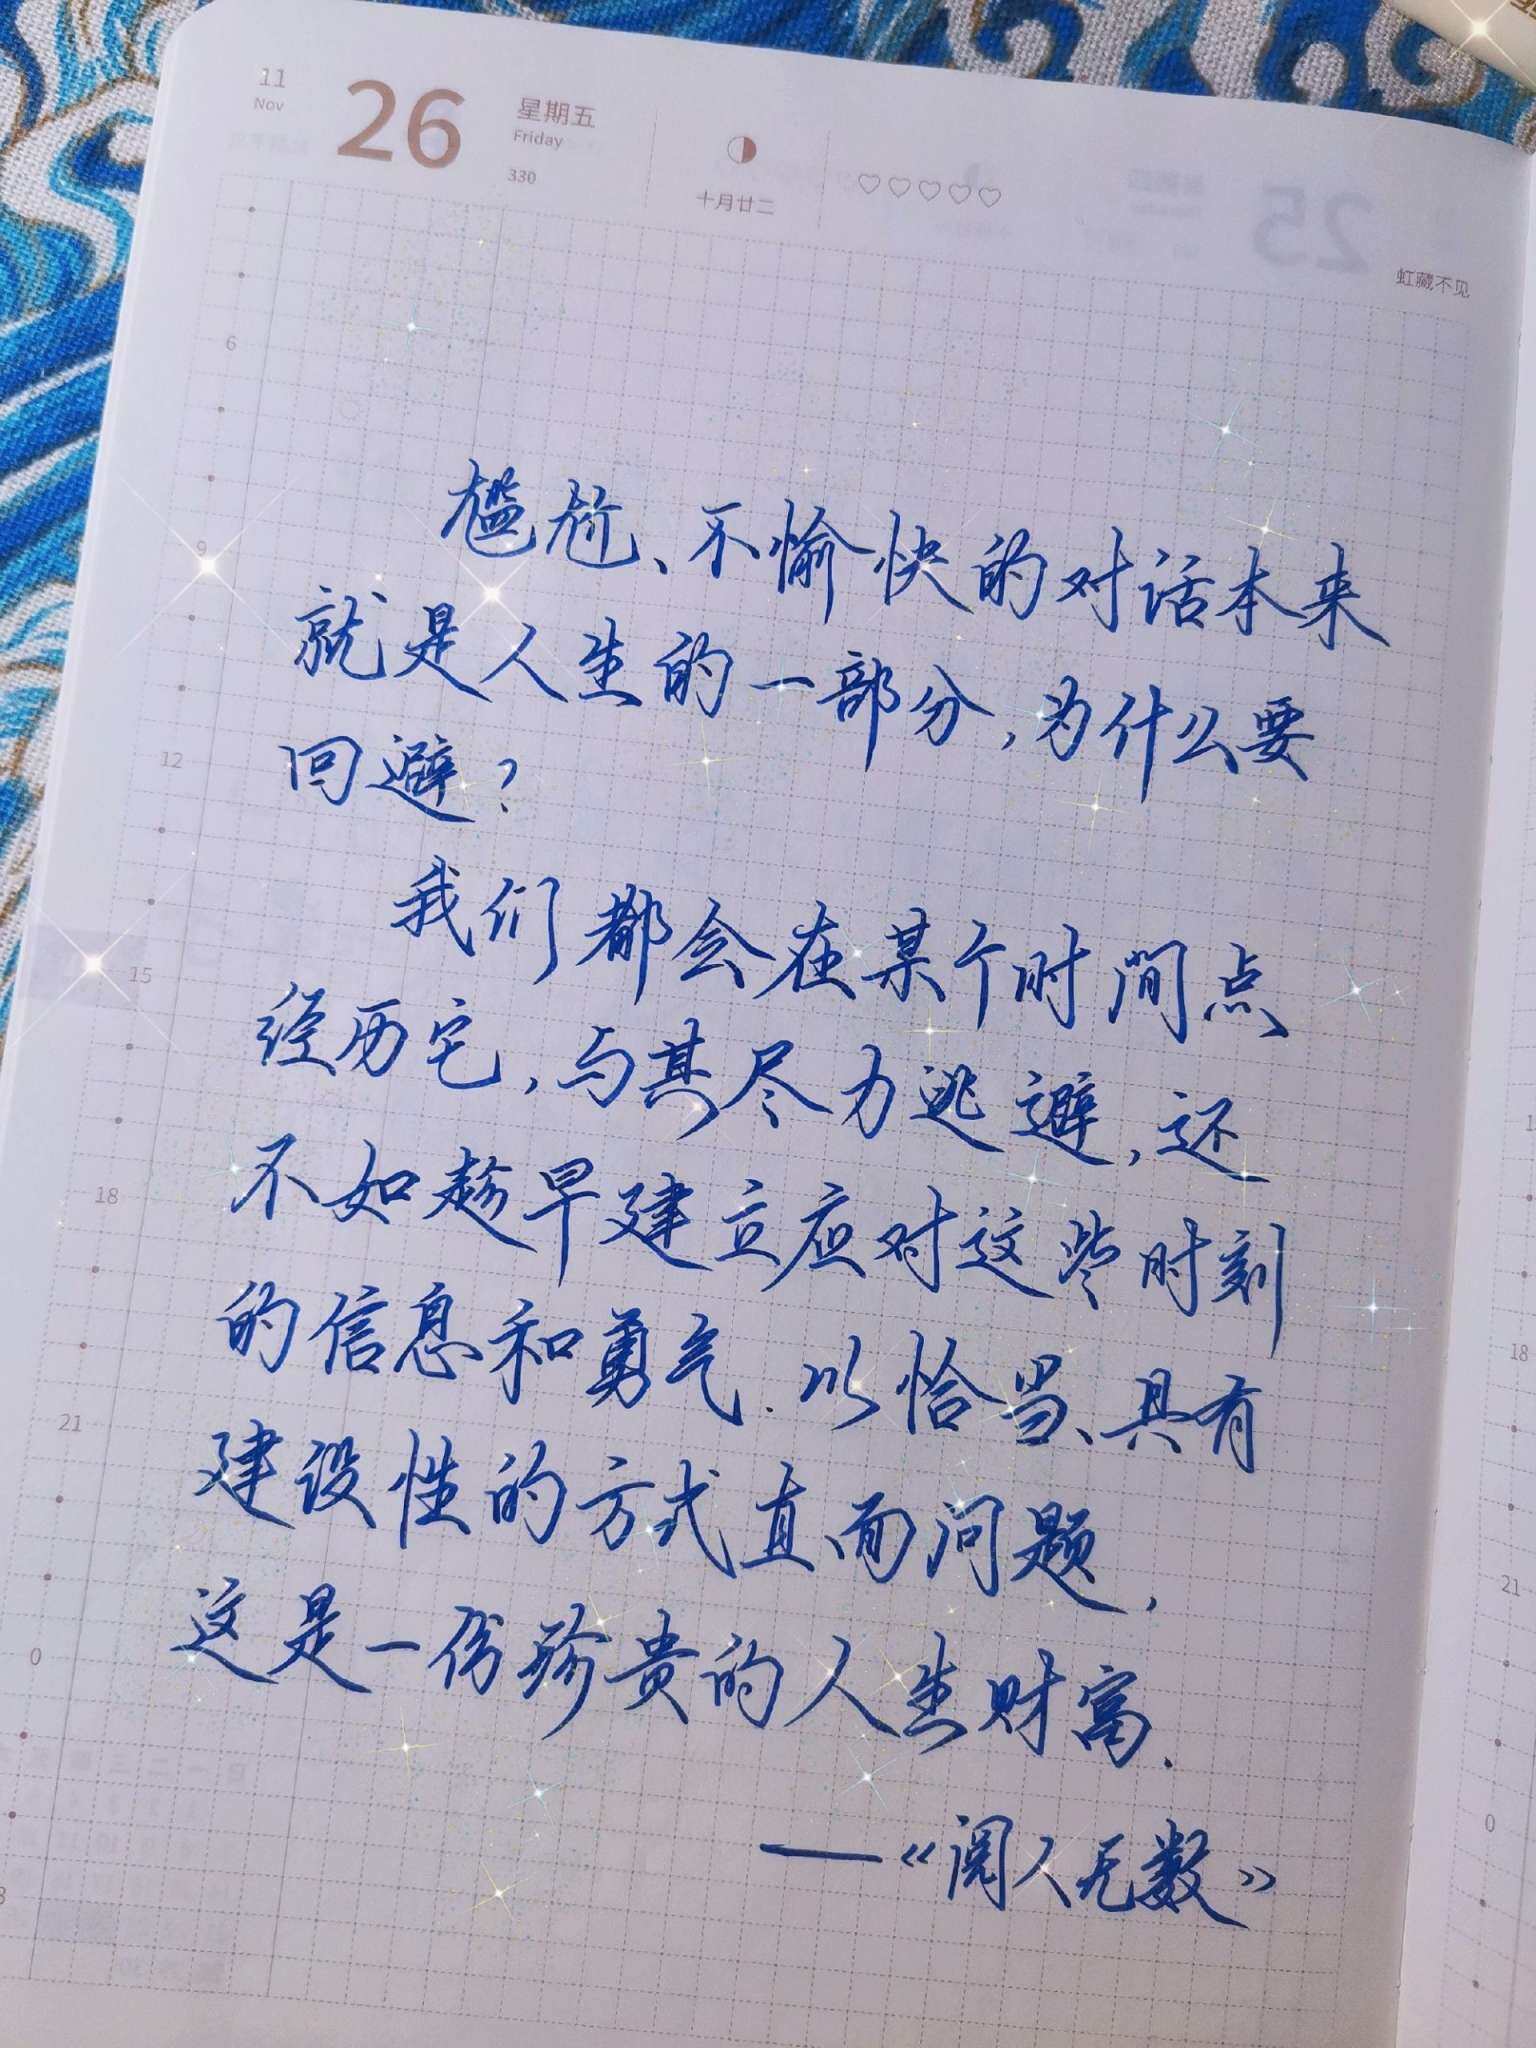 11
Nov
26
星期五
Friday
330
十月廿二
25
虹藏不见
6
9
12
15
18
21
0
尴尬、不愉快的对话本来
就是人生的一部分,为什么要
回避?
我们都会在某个时间点
经历它,与其尽力逃避,还
不如趁早建立应对这些时刻
的信息和勇气.以恰当、具有
建设性的方式直面问题,
这是一份珍贵的人生财富.
——《阅人无数》
18
21
0